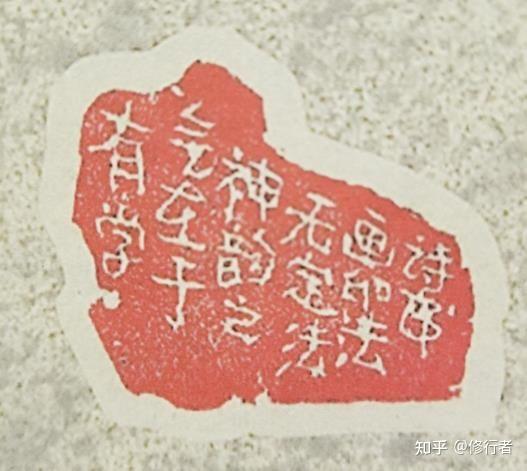 诗书
画印法
无定法
神韵之
在于
有学
知乎 @修行者